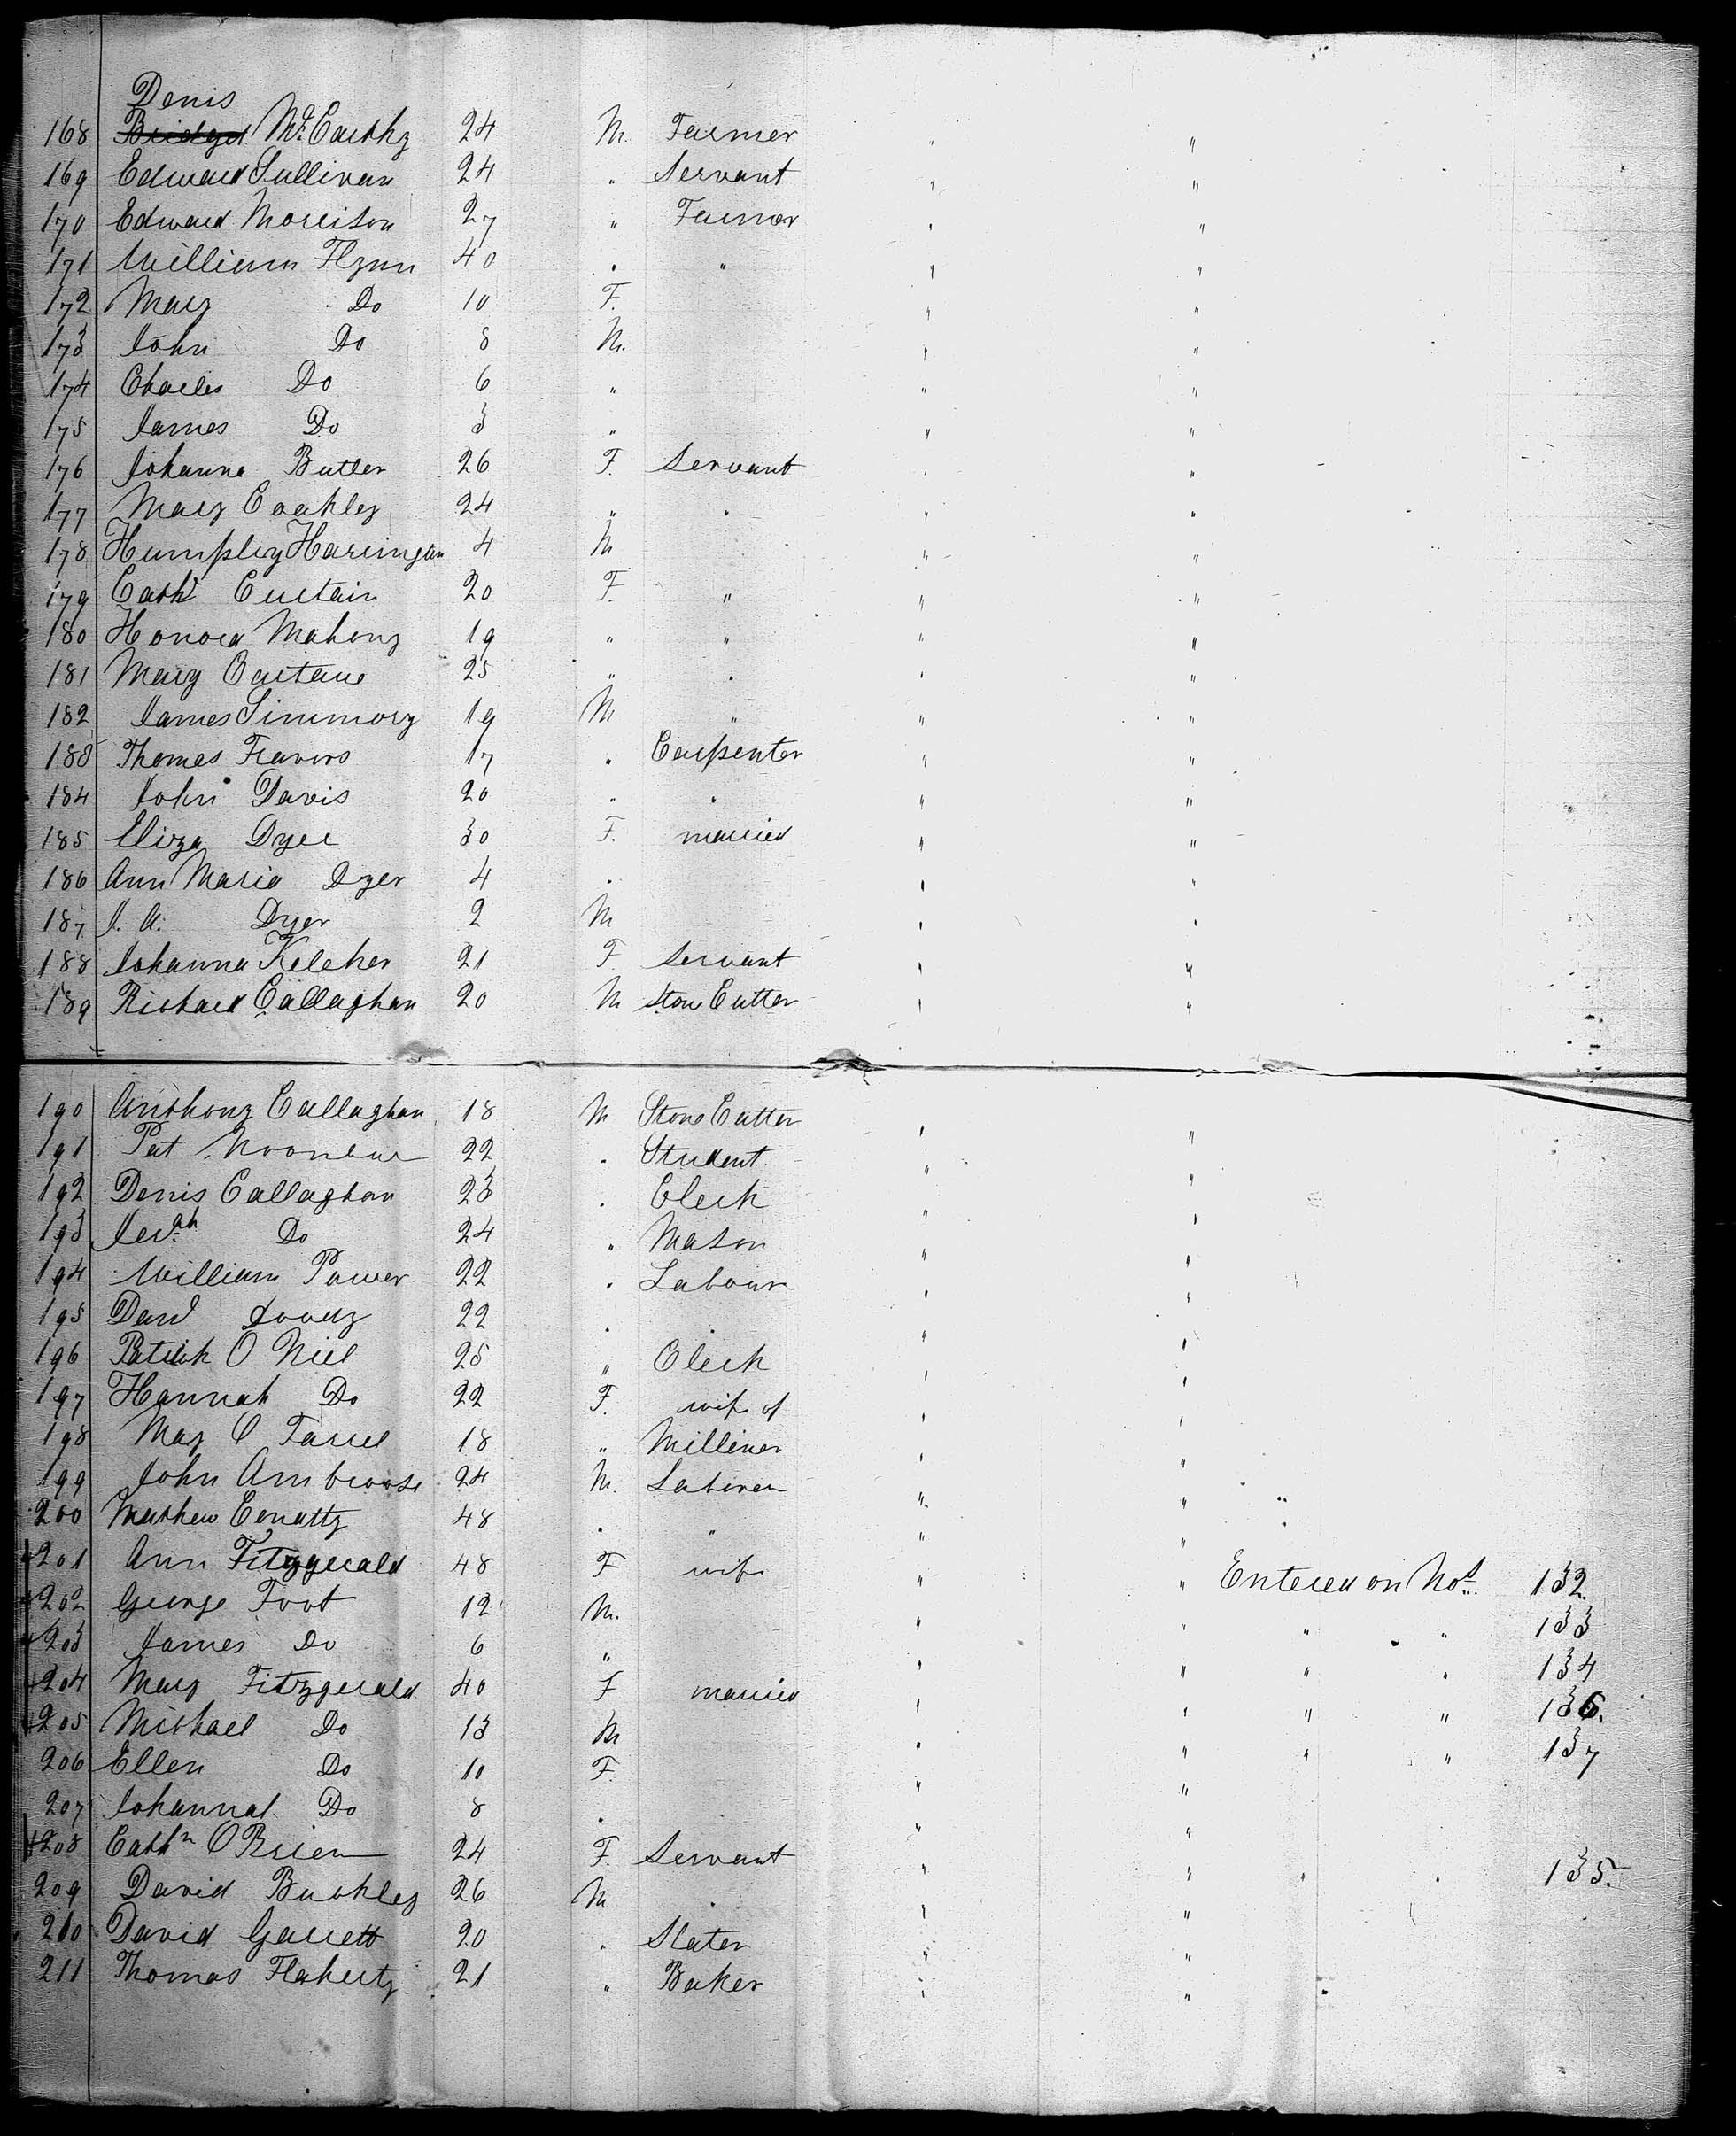 Denis
168 Bridget Mc.Carthy 24 M. Farmer " "
169 Edward Sullivan 24 " Servant " "
170 Edward Morrison 27 " Farmer " "
171 William Flynn 40 " " " "
172 Mary Do 10 F. " "
173 John Do 8 M. " "
174 Charles Do 6 " " "
175 James Do 3 " " "
176 Johanna Butler 26 F. Servant " "
177 Mary Coakley 24 " " " "
178 Humphry Harringan 4 M " "
179 Cath Curtain 20 F. " " "
180 Honora Mahony 19 " " " "
181 Mary 25 " " " "
182 James 19 M " " "
183 Thomas 17 " Carpenter " "
184 John Davis 20 " " " "
185 Eliza Dyer 30 F. married " "
186 Ann Maria Dyer 4 " " "
187 J. A. Dyer 2 M " "
188 Johanna Keleher 21 F Servant " "
189 Richard Callaghan 20 M Stone Cutter " "
190 Anthony Callaghan 18 M Stone Cutter " "
191 Pat 22 " Student " "
192 Denis Callaghan 23 " Clerk " "
193 Jer.ah Do 24 " Mason " "
194 William Power 22 " Labour " "
195 Dan'l 22 " " " "
196 Patrick O Niel 25 " Clerk " "
197 Hannah Do 22 F. wife of " "
198 May O Farrel 18 " Milliner " "
199 John Ambrose 24 M. Laborer " "
200 Mathew 48 " " " "
201 Ann Fitzgerald 48 F wife " " Entered on Nos. 132
202 George Foot 12 M. " " " " 133
203 James Do 6 " " " " " 134
204 Mary Fitzgerald 40 F married " " " " 136.
205 Michael Do 13 M " " " " 137
206 Ellen Do 10 F. " "
207 Johannah Do 8 " " "
208 Cathn O Brien 24 F. Servant " " " " 135.
209 David Buckley 26 M " " "
210 David Garrett 20 " Slater " "
211 Thomas Flaherty 21 " Baker " "